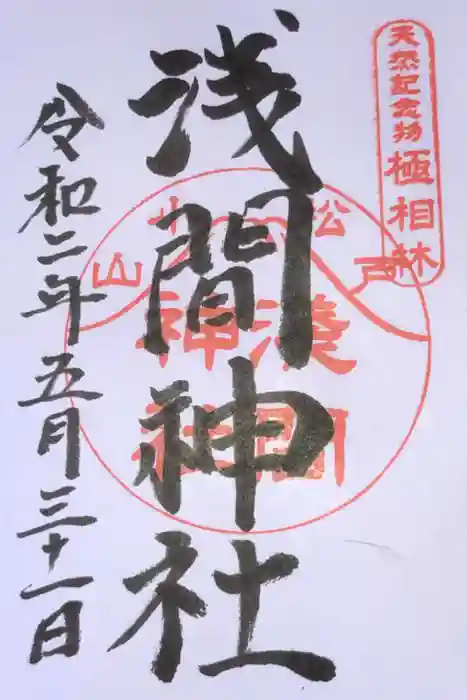 天然記念物 極相林
浅間神社
松戸
小山
淺間
神社
令和二年五月三十一日